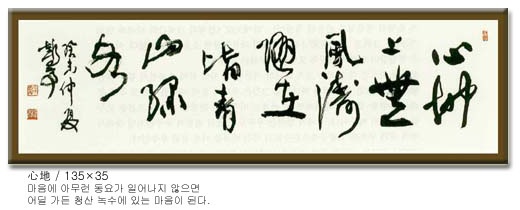 心地
上無
風濤
隨在
皆青
山綠
水
未仲夏
心地 / 135×35
마음에 아무런 동요가 일어나지 않으면
어딜 가든 청산 녹수에 있는 마음이 된다.